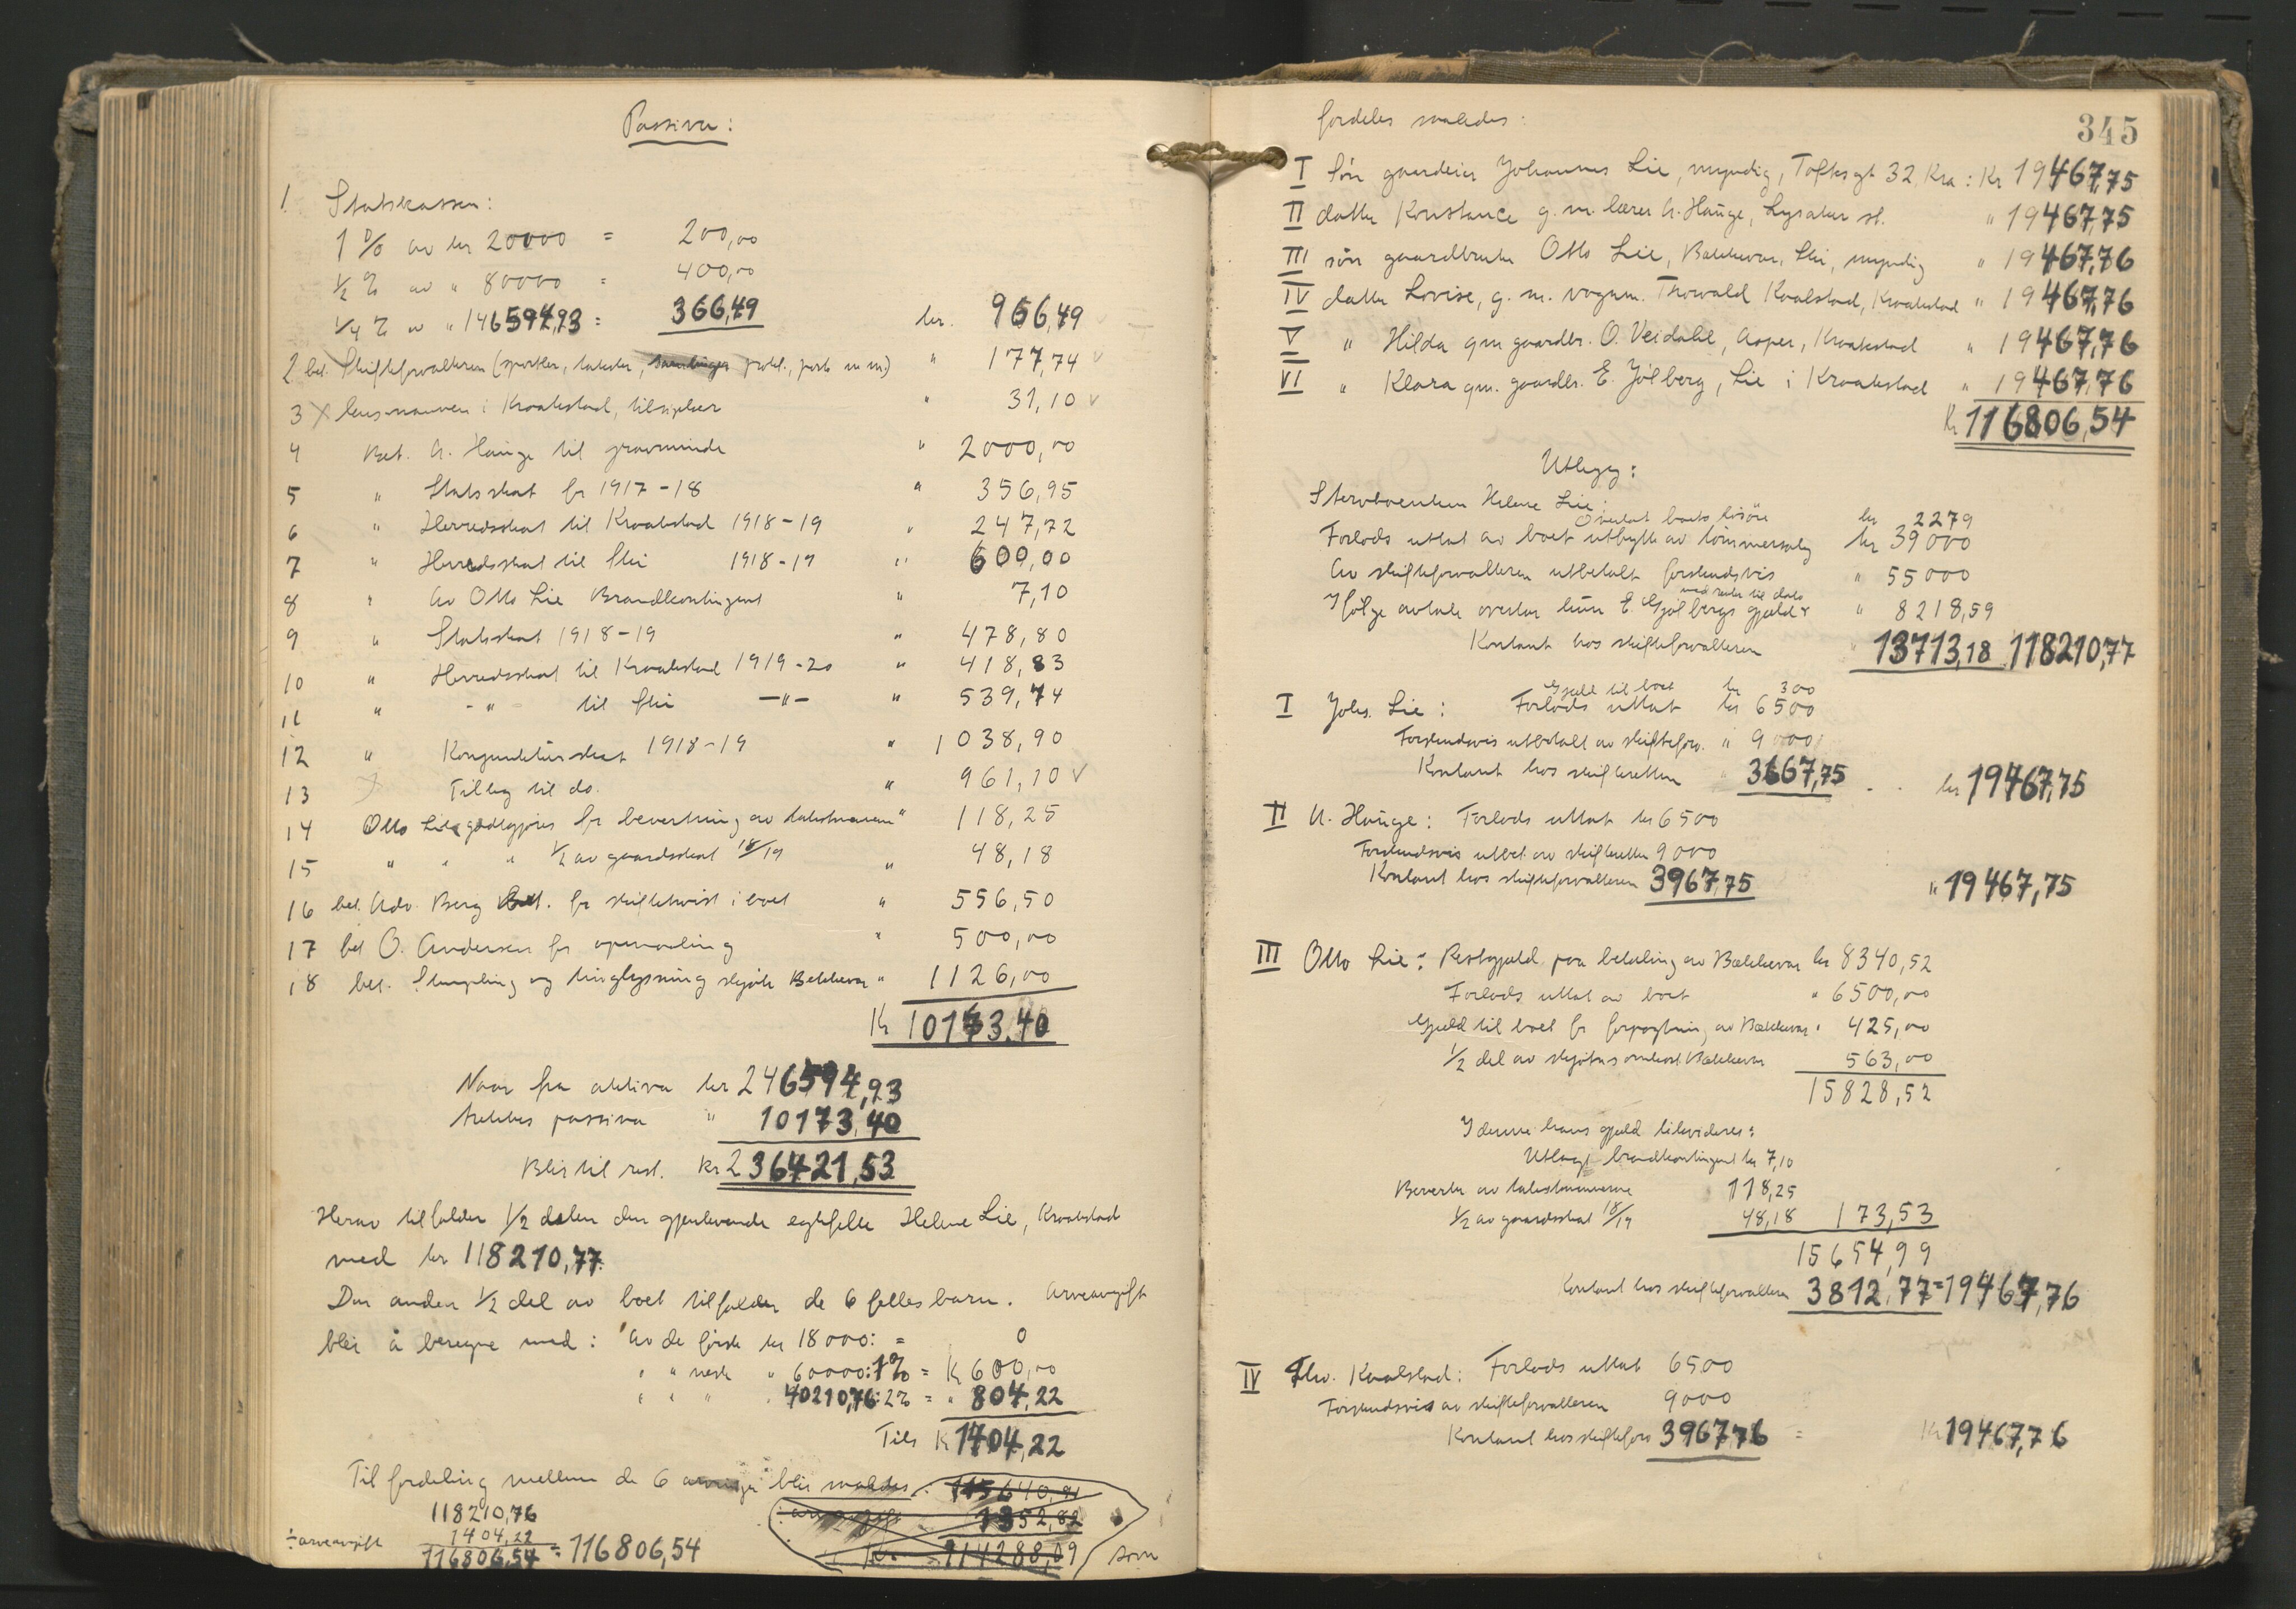 Passiva:
1 Statskassen:
1 % av kr 20000 = 200,00
½ % av " 80000 = 400,00
¼ % av " 146594,93 = 366,49 kr. 966,49
2 bet. Skifteforvalteren (sportler, takster, protok., porto m m) " 177,74
3 lensmannen i Kraakstad, tilsigelser " 31,10
4 Bet. A. Hauge til gravminde " 2000,00
5 " Statsskat for 1917-18 " 356,95
6 " Herredsskat til Kraakstad 1918-19 " 247,72
7 " Herredsskat til Ski 1918-19 " 609,00
8 " Av Otto Lie Brandkontingent " 7,10
9 " Statsskat 1918-19 " 478,80
10 " Herredsskat til Kraakstad 1919-20 " 418,83
11 " - " - til Ski —"— " 539,74
12 " Konjunkturskat 1918-19 " 1038,90
13 Tillæg til do. " 961,10
14 Otto Lie godtgjøres for bevertning av takstmænn " 118,25
15 " " " ½ av gaardsskat 18/19 " 48,18
16 bet. Adv. Berg for skiftetvist i boet " 556,50
17 bet O. Andersen for opmaaling " 500,00
18 bet. Stempling og tinglysning skjøte Bækkevar " 1126,00
Kr 10173,40
Naar fra aktiva kr 246594,93
trækkes passiva " 10173,40
Blir til rest. Kr 236421,53
Herav tilfalder ½ delen den gjenlevende egtefelle Helene Lie, Kraakstad
med kr 118210,77.
Den anden ½ del av boet tilfalder de 6 felles barn. Arveavgift
blir å beregne med: av de første kr 18000: = 0
" " neste " 60000: 1% = Kr 600,00
" " " " 40210,76: 2% = " 804,22
Tils Kr 1404,22
Til fordeling mellem de 6 arvinger blir saaledes 115640,91
118210,76
÷ arveavgift 1404,22
116806,54 = 116806,54
÷ arveavgift 1352,82
Kr. 114288,09 som
345
fordeles saaledes:
I Søn gaardeier Johannes Lie, myndig, Toftesgt 32, Kra: Kr 19467,75
II datter Konstance g. m. lærer A. Hauge, Lysaker st. " 19467,75
III søn gaardbruker Otto Lie, Bækkevar, Ski, myndig " 19467,76
IV datter Lovise, g. m. vognm. Thorvald Kaalstad, Kraakstad " 19467,76
V " Hilda gm gaardbr. O. Veidahl, Asper, Kraakstad " 19467,76
VI " Klara gm. gaardbr. E. Gjølberg, Lie i Kraakstad " 19467,76
Kr 116806,54
Utlegg:
Stervboenken Helene Lie:
Overtat boets løsøre kr 2279
Forlods uttat av boet utbytte av tømmersalg kr 39000
Av skifteforvalteren utbetalt forskudsvis " 55000
Ifølge avtale overtar hun E. Gjølbergs gjæld med renter til dato " 8218,59
Kontant hos skifteforvalteren " 13713,18 118210,77
I Johs. Lie: Gjæld til boet kr 300
Forlods uttat kr 6500
Forskudsvis utbetalt av skifteforv. " 9000
Kontant hos skifteretten " 3667,75 . . kr 19467,75
II A. Hauge: Forlods uttat kr 6500
Forskudsvis utbet. av skifteretten 9000
Kontant hos skifteforvalteren 3967,75 " 19467,75
III Otto Lie: Restgjæld paa betaling av Bækkevar kr 8340,52
Forlods uttat av boet " 6500,00
Gjæld til boet for forpagtning av Bækkevar " 425,00
½ del av skjøtnsomkost Bækkevar 563,00
15828,52
I denne hans gjæld likvideres:
Utlagt brandkontingent kr 7,10
Bevertn av takstmennene 118,25
½ av gaardsskat 18/19 48,18 173,53
15654,99
Kontant hos skifteforvalteren 3812,77 = 19467,76
IV Thv. Kaalstad: Forlods uttat 6500
Forskudsvis av skifteforvalteren 9000
Kontant hos skifteforv 3967,76 = Kr 19467,76